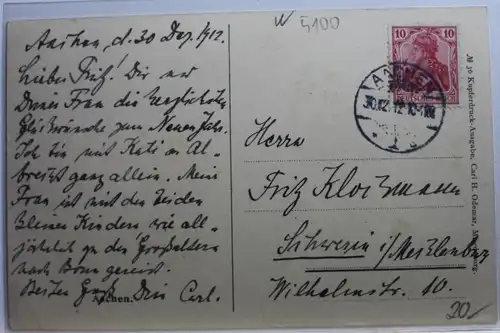 W 5100
Aachen, d. 30 Dez. 1912.
Lieber Fritz! Dir und
Deiner Frau die herzlichsten
Glückwünsche zum Neuen Jahr.
Ich bin mit Kati
ganz allein. Meine
Frau ist mit den beiden
kleinen Kindern wie all-
jährlich zu den Großeltern
nach Bonn gereist.
Besten Gruß Dein Carl.
Aachen.
10 10
AACHEN
30.12.12
1
Herrn
Fritz
Schwerin i/Mecklenburg
Wilhelmstr. 10.
20
№ 36 Kupferdruck-Ausgabe, Carl H. Odemar, Magdeburg.